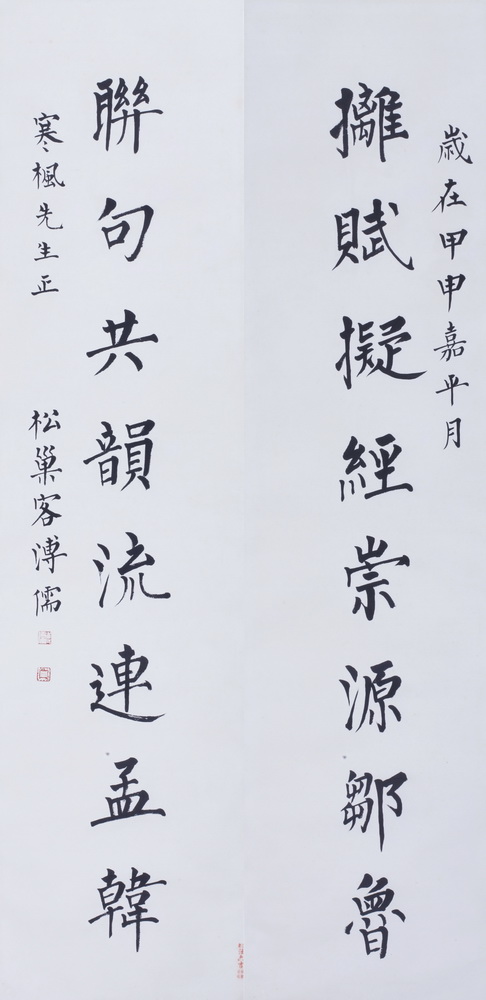 歲在甲申嘉平月
攡賦擬經崇源鄒魯
聯句共韻流連孟韓
寒楓先生正 松巢客溥儒